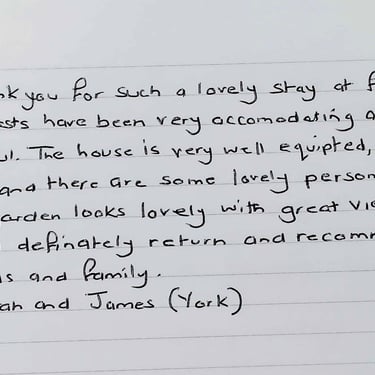 nk you for such a lovely stay at f
sts have been very accomodating a
ul. The house is very well equipted,
and there are some lovely person
arden looks lovely with great vie
definately return and recomm
s and family.
ah and James (York)